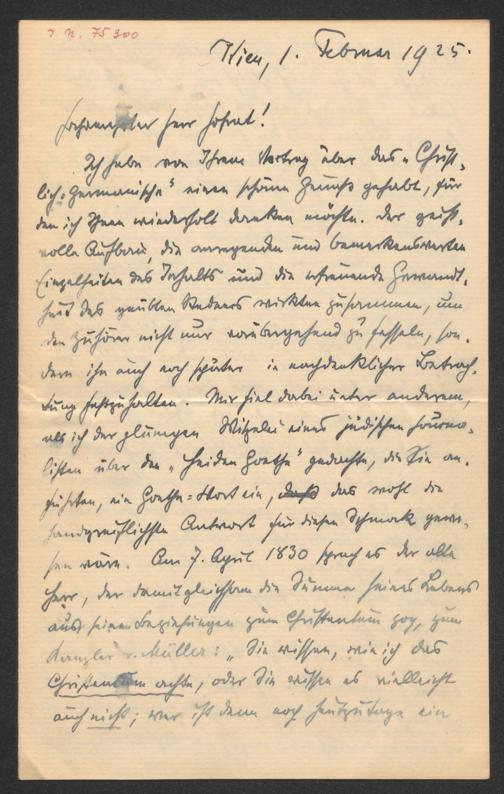 J. N. 75300
Wien, 1. Februar 1925.
Hochverehrter Herr Hofrat!
Ich habe von Ihrem Vortrag über das „Christ-
lich=Germanische“ einen schönen Genuß gehabt, für
den ich Ihnen wiederholt danken möchte. Der geist-
volle Aufbau, die anregenden und bemerkenswerten
Einzelheiten des Inhalts und die erfreuende Gewandt-
heit des geübten Redners wirkten zusammen, um
den Zuhörer nicht nur vorübergehend zu fesseln, son-
dern ihn auch noch später in nachdenklicher Betrach-
tung festzuhalten. Mir fiel dabei unter anderem,
als ich der plumpen Witzelei eines jüdischen Journa-
listen über den „Heiden Goethe“ gedachte, die Sie an-
führten, ein Goethe=Wort ein, daß das wohl die
handgreiflichste Antwort für diesen Schmock gewe-
sen wäre. Am 7. April 1830 sprach es der alte
Herr, der damit gleichsam die Summe seines Lebens
aus seinen Beziehungen zum Christentum zog, zum
Kanzler v. Müller: „Sie wissen, wie ich das
Christentum achte, oder Sie wissen es vielleicht
auch nicht; wer ist denn noch heutzutage ein